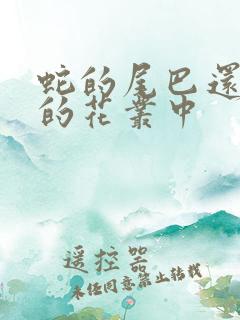 蛇的尾巴還
的花叢中
遥控器
未任同意禁止转载